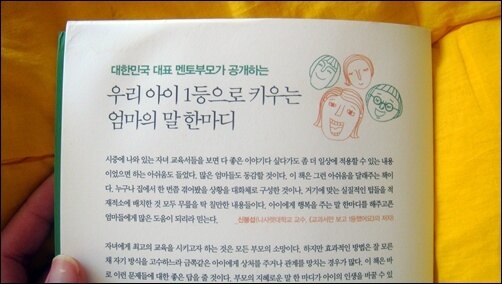 대한민국 대표 멘토부모가 공개하는
우리 아이 1등으로 키우는
엄마의 말 한마디
시중에 나와 있는 자녀 교육서들을 보면 다 좋은 이야기다 싶다가도 좀 더 일상에 적용할 수 있는 내용
이었으면 하는 아쉬움도 들었다. 많은 엄마들도 동감할 것이다. 이 책은 그런 아쉬움을 달래주는 책이
다. 누구나 집에서 한 번쯤 겪어봤을 상황을 대화체로 구성한 것이나, 거기에 맞는 실질적인 팁들을 적
재적소에 배치한 것 모두 무릎을 탁 칠만한 내용들이다. 아이에게 행복을 주는 말 한마디를 해주고픈
엄마들에게 많은 도움이 되리라 믿는다. 신붕섭(나사렛대학교 교수, 《교과서만 보고 1등했어요》의 저자)
자녀에게 최고의 교육을 시키고자 하는 것은 모든 부모의 소망이다. 하지만 효과적인 방법은 잘 모른
채 자기 방식을 고수하느라 금쪽같은 아이에게 상처를 주거나 관계를 망치는 경우가 많다. 이 책은 바
로 이런 문제들에 대한 좋은 답을 줄 것이다. 부모의 지혜로운 말 한 마디가 아이의 인생을 바꿀 수 있